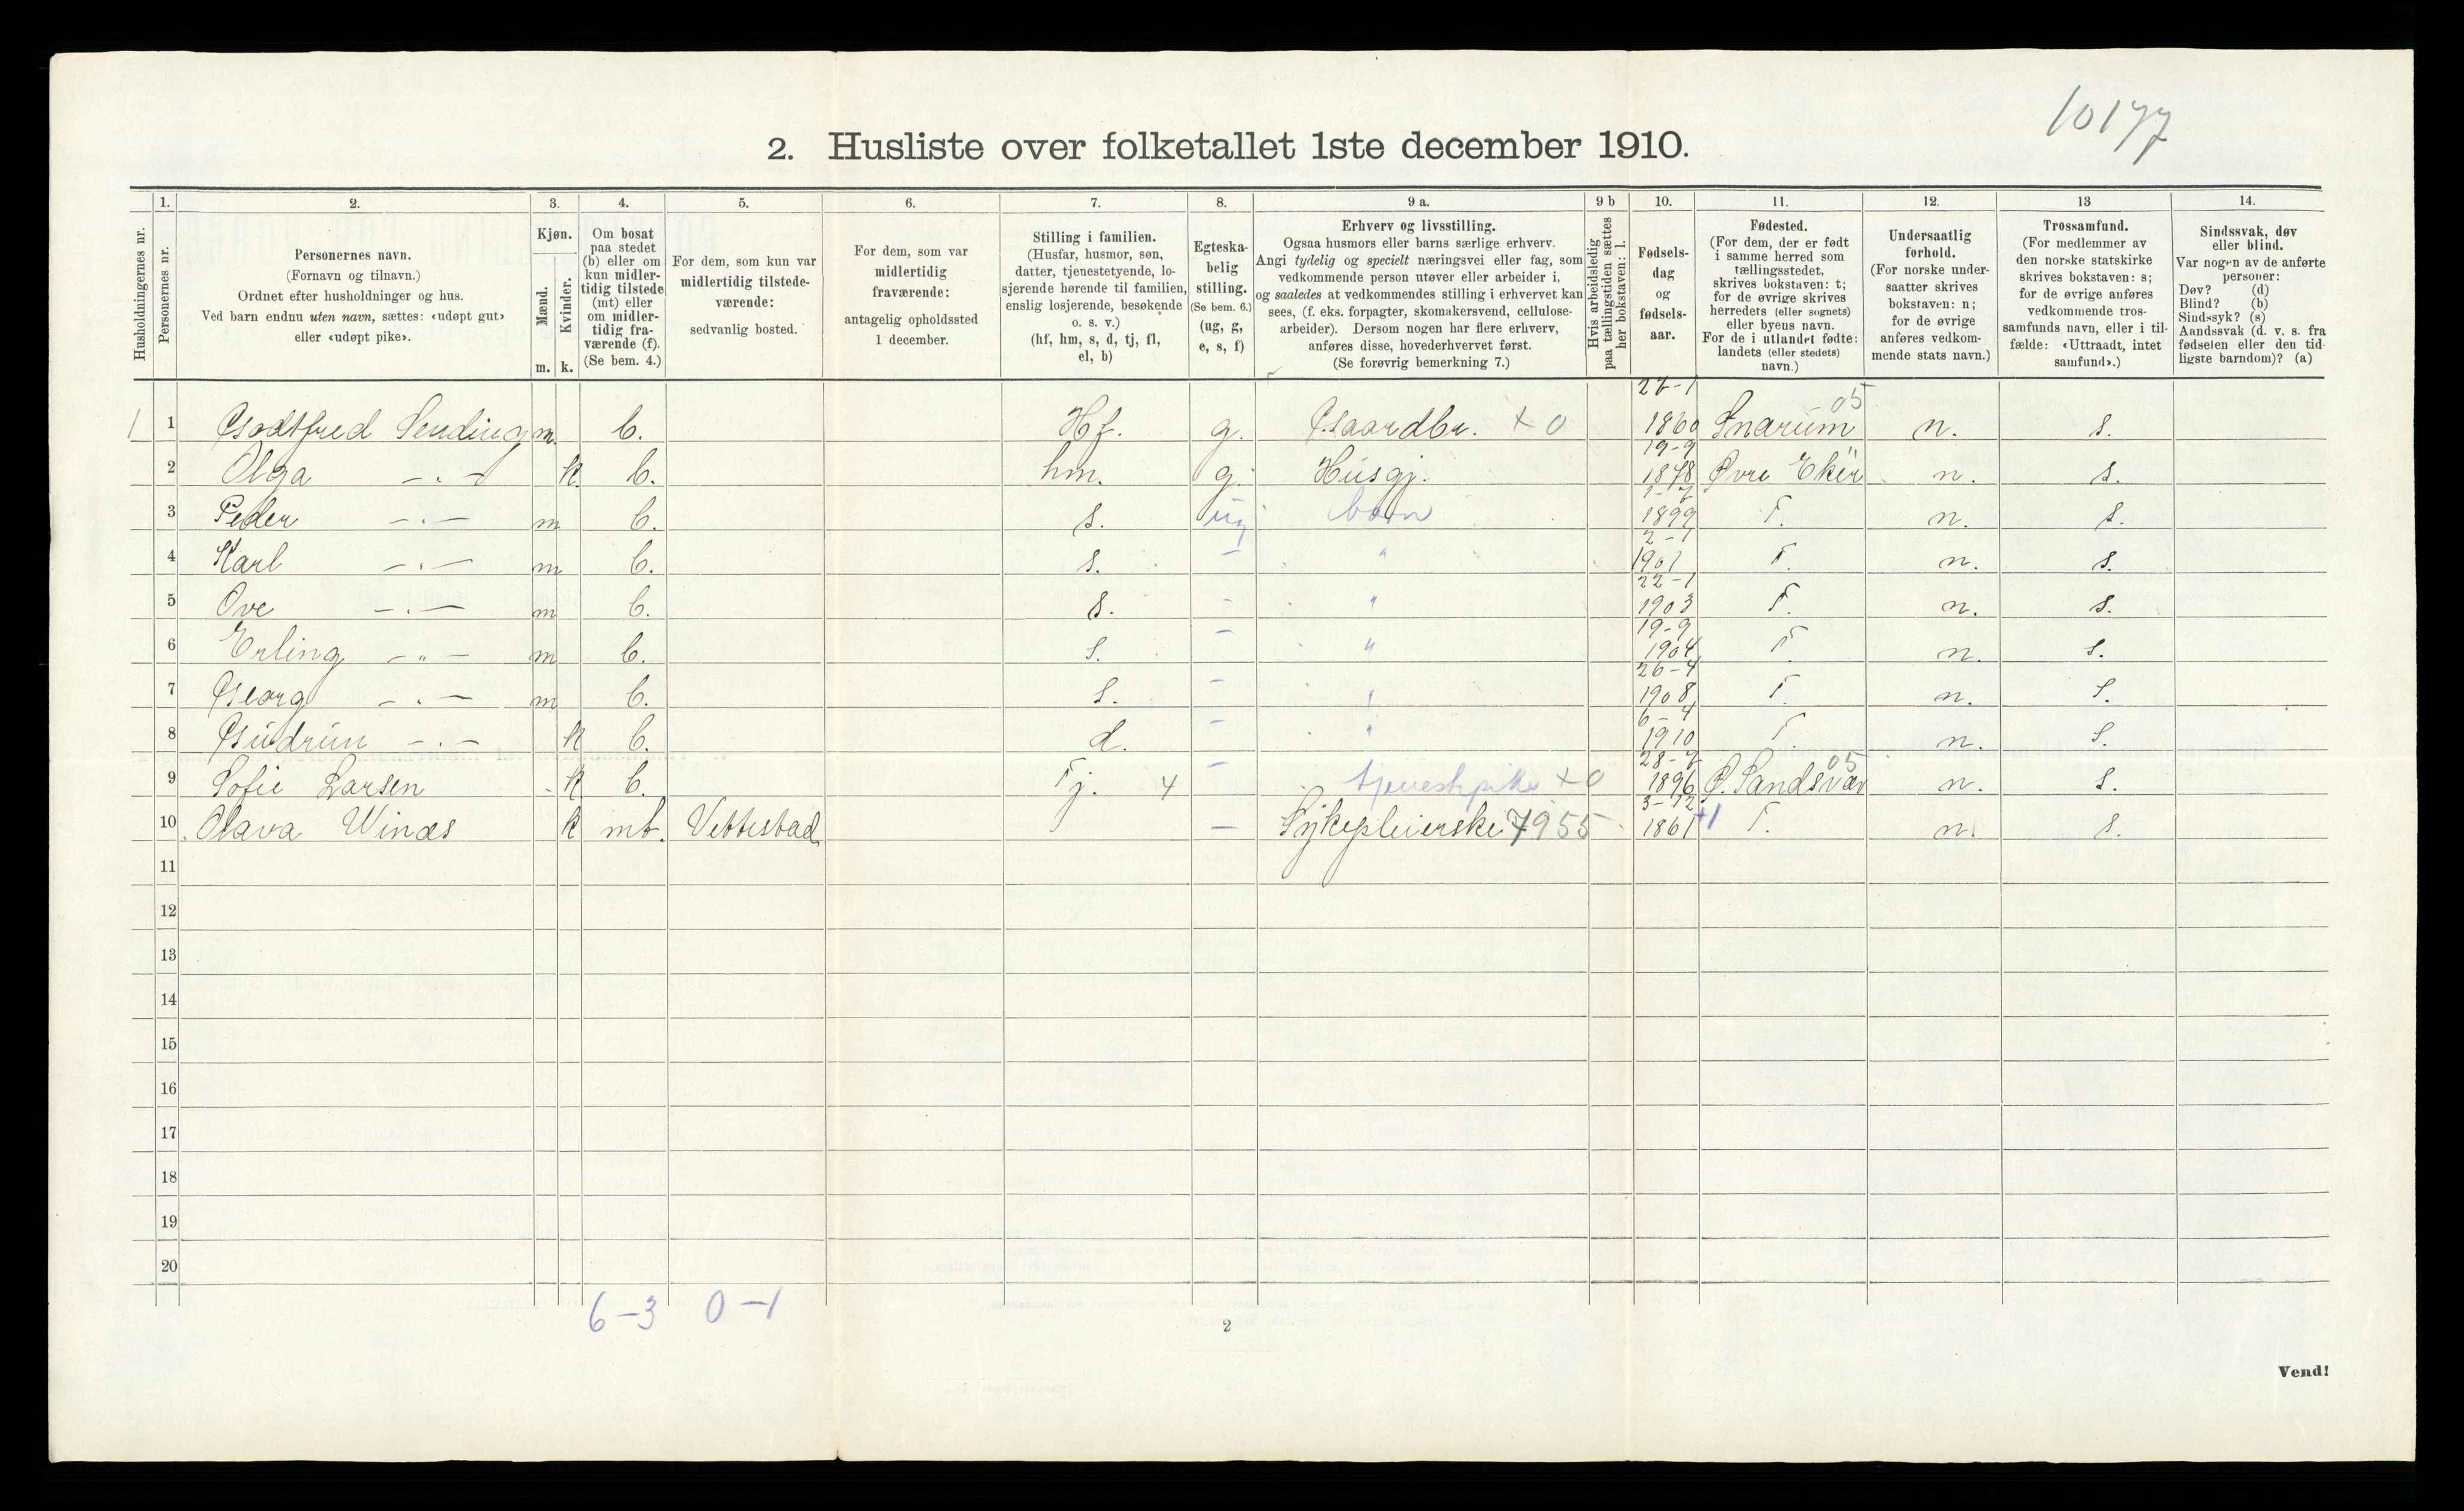 10177
2. Husliste over folketallet 1ste december 1910.
Husholdningernes nr.
1. Personernes nr.
2. Personernes navn.
(Fornavn og tilnavn.)
Ordnet efter husholdninger og hus.
Ved barn endnu uten navn, sættes: «udøpt gut»
eller «udøpt pike».
3. Kjøn.
Mænd. m.
Kvinder. k.
4. Om bosat
paa stedet
(b) eller om
kun midler-
tidig tilstede
(mt) eller
om midler-
tidig fra-
værende (f).
(Se bem. 4.)
5. For dem, som kun var
midlertidig tilstede-
værende:
sedvanlig bosted.
6. For dem, som var
midlertidig
fraværende:
antagelig opholdssted
1 december.
7. Stilling i familien.
(Husfar, husmor, søn,
datter, tjenestetyende, lo-
sjerende hørende til familien,
enslig losjerende, besøkende
o. s. v.)
(hf, hm, s, d, tj, fl,
el, b)
8. Egteska-
belig
stilling.
(Se bem. 6.)
(ug, g,
e, s, f)
9 a. Erhverv og livsstilling.
Ogsaa husmors eller barns særlige erhverv.
Angi tydelig og specielt næringsvei eller fag, som
vedkommende person utøver eller arbeider i,
og saaledes at vedkommendes stilling i erhvervet kan
sees, (f. eks. forpagter, skomakersvend, cellulose-
arbeider). Dersom nogen har flere erhverv,
anføres disse, hovederhvervet først.
(Se forøvrig bemerkning 7.)
9 b Hvis arbeidsledig
paa tællingstiden sættes
her bokstaven: l.
10. Fødsels-
dag
og
fødsels-
aar.
11. Fødested.
(For dem, der er født
i samme herred som
tællingsstedet,
skrives bokstaven: t;
for de øvrige skrives
herredets (eller sognets)
eller byens navn.
For de i utlandet fødte:
landets (eller stedets)
navn.)
12. Undersaatlig
forhold.
(For norske under-
saatter skrives
bokstaven: n;
for de øvrige
anføres vedkom-
mende stats navn.)
13 Trossamfund.
(For medlemmer av
den norske statskirke
skrives bokstaven: s;
for de øvrige anføres
vedkommende tros-
samfunds navn, eller i til-
fælde: «Uttraadt, intet
samfund».)
14. Sindssvak, døv
eller blind.
Var nogen av de anførte
personer:
Døv? (d)
Blind? (b)
Sindssyk? (s)
Aandssvak (d. v. s. fra
fødselen eller den tid-
ligste barndom)? (a)
1 1 Godtfred Sending m. b. Hf. g. Gaardbr. x 0 1860 Snarum 05 n. s.
2 Olga -.- k. b. hm. g. Husgj. 19-9 1878 Øvre Eker n. s.
3 Peder -.- m b. s. ug barn 1-7 1899 T. n. s.
4 Karl -.- m b. s. - " 2-1 1901 T. n. s.
5 Ove -.- m b. s. - " 22-1 1903 T. n. s.
6 Erling -"- m b. s. - " 19-9 1904 T. n. s.
7 Georg -.- m b. s. - " 26-4 1908 T. n. s.
8 Gudrun -.- k b. d. - " 6-4 1910 T. n. s.
9 Sofie Larsen k b. Tj. 4 - tjenestpike x 0 28-7 1896 Ø. Sandsvær 05 n. s.
10 Olava Winæs k mt. Vettestad - Sykepleierske 7955 3-12 1861 +1 T. n. s.
11
12
13
14
15
16
17
18
19
20
6-3 0-1
2
Vend!